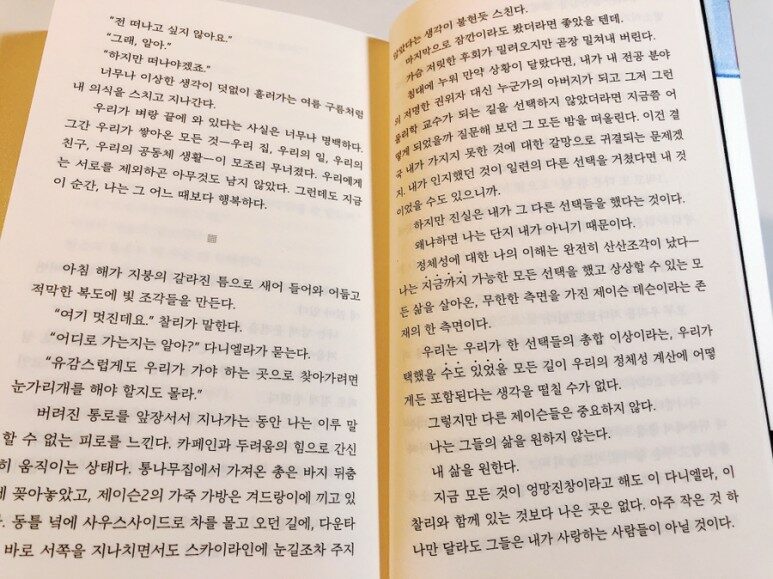 “전 떠나고 싶지 않아요.”
“그래, 알아.”
“하지만 떠나야겠죠.”
너무나 이상한 생각이 덧없이 흘러가는 여름 구름처럼
내 의식을 스치고 지나간다.
우리가 벼랑 끝에 와 있다는 사실은 너무나 명백하다.
그간 우리가 쌓아온 모든 것—우리 집, 우리의 일, 우리의
친구, 우리의 공동체 생활—이 모조리 무너졌다. 우리에게
는 서로를 제외하곤 아무것도 남지 않았다. 그런데도 지금
이 순간, 나는 그 어느 때보다 행복하다.
아침 해가 지붕의 갈라진 틈으로 새어 들어와 어둡고
적막한 복도에 빛 조각들을 만든다.
“여기 멋진데요.” 찰리가 말한다.
“어디로 가는지는 알아?” 다니엘라가 묻는다.
“유감스럽게도 우리가 가야 하는 곳으로 찾아가려면
눈가리개를 해야 할지도 몰라.”
버려진 통로를 앞장서서 지나가는 동안 나는 이루 말
할 수 없는 피로를 느낀다. 카페인과 두려움의 힘으로 간신
히 움직이는 상태다. 통나무집에서 가져온 총은 바지 뒤춤
에 꽂아놓았고, 제이슨2의 가죽 가방은 겨드랑이에 끼고 있
다. 동틀 녘에 사우스사이드로 차를 몰고 오던 길에, 다운타
바로 서쪽을 지나치면서도 스카이라인에 눈길조차 주지
않았다는 생각이 불현듯 스친다.
마지막으로 잠깐이라도 봤더라면 좋았을 텐데.
가슴 저릿한 후회가 밀려오지만 곧장 밀쳐내 버린다.
침대에 누워 만약 상황이 달랐다면, 내가 내 전공 분야
의 저명한 권위자 대신 누군가의 아버지가 되고 그저 그런
물리학 교수가 되는 길을 선택하지 않았더라면 지금쯤 어
떻게 되었을까 질문해 보던 그 모든 밤을 떠올린다. 이건 결
국 내가 가지지 못한 것에 대한 갈망으로 귀결되는 문제겠
지. 내가 인지했던 것이 일련의 다른 선택을 거쳤다면 내 것
이었을 수도 있으니까.
하지만 진실은 내가 그 다른 선택들을 했다는 것이다.
왜냐하면 나는 단지 내가 아니기 때문이다.
정체성에 대한 나의 이해는 완전히 산산조각이 났다—
나는 지금까지 가능한 모든 선택을 했고 상상할 수 있는 모
든 삶을 살아온, 무한한 측면을 가진 제이슨 데슨이라는 존
재의 한 측면이다.
우리는 우리가 한 선택들의 총합 이상이라는, 우리가
택했을 수도 있었을 모든 길이 우리의 정체성 계산에 어떻
게든 포함된다는 생각을 떨칠 수가 없다.
그렇지만 다른 제이슨들은 중요하지 않다.
나는 그들의 삶을 원하지 않는다.
내 삶을 원한다.
지금 모든 것이 엉망진창이라고 해도 이 다니엘라, 이
찰리와 함께 있는 것보다 나은 곳은 없다. 아주 작은 것 하
나만 달라도 그들은 내가 사랑하는 사람들이 아닐 것이다.